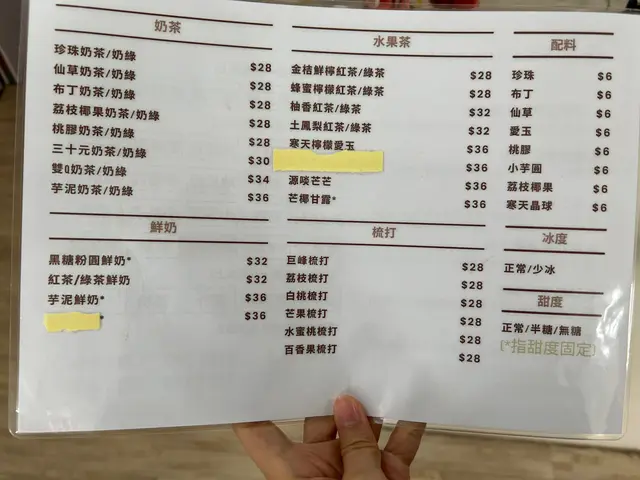 奶茶
珍珠奶茶/奶綠 $28
仙草奶茶/奶綠 $28
布丁奶茶/奶綠 $28
荔枝椰果奶茶/奶綠 $28
桃膠奶茶/奶綠 $28
三十元奶茶/奶綠 $30
雙Q奶茶/奶綠 $34
芋泥奶茶/奶綠 $36
鮮奶
黑糖粉圓鮮奶* $32
紅茶/綠茶鮮奶 $32
芋泥鮮奶* $36
* $36
水果茶
金桔鮮檸紅茶/綠茶 $28
蜂蜜檸檬紅茶/綠茶 $28
柚香紅茶/綠茶 $32
土鳳梨紅茶/綠茶 $32
寒天檸檬愛玉 $36
$36
源啖芒芒 $36
芒椰甘露* $36
梳打
巨峰梳打 $28
荔枝梳打 $28
白桃梳打 $28
芒果梳打 $28
水蜜桃梳打 $28
百香果梳打 $28
配料
珍珠 $6
布丁 $6
仙草 $6
愛玉 $6
桃膠 $6
小芋圓 $6
荔枝椰果 $6
寒天晶球 $6
冰度
正常/少冰
甜度
正常/半糖/無糖
[*指甜度固定]